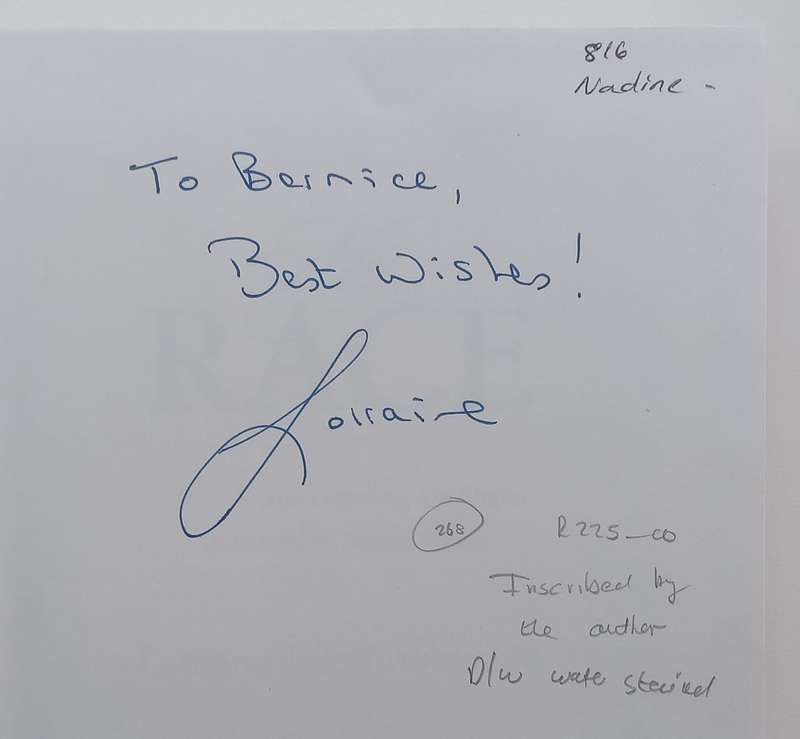 816
Nadine -
To Bernice,
Best Wishes!
Lorraine
268
R225-00
Inscribed by
the author
D/w water stained
RACE